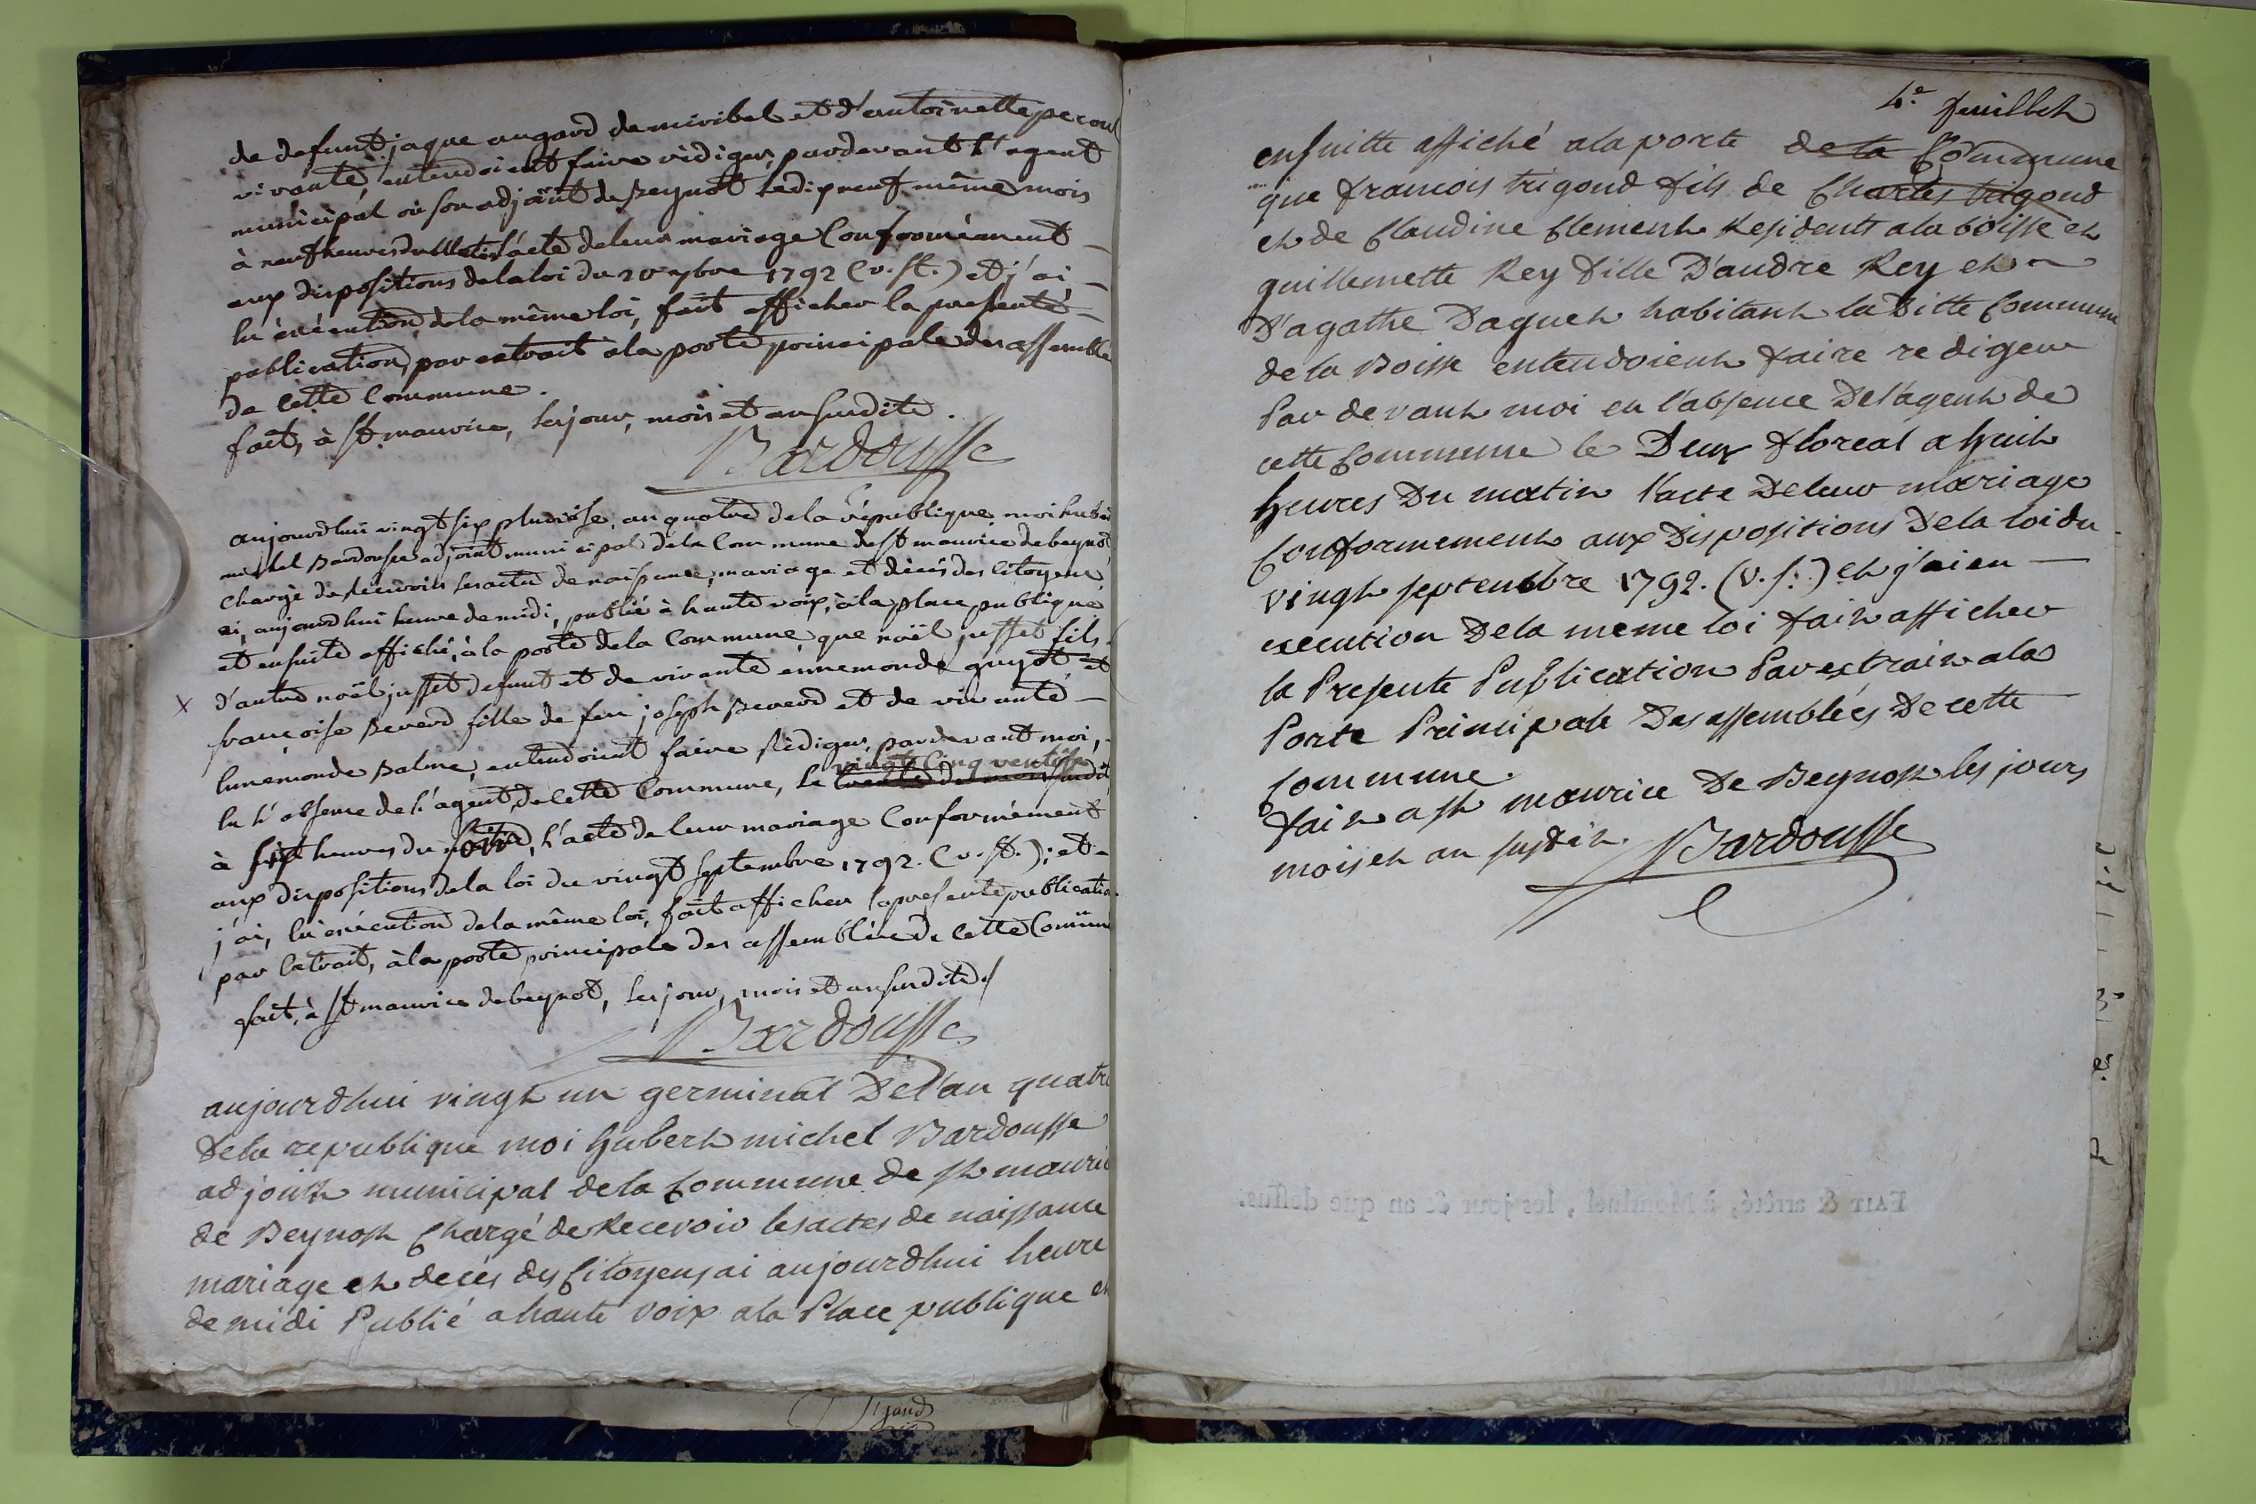 de defunt jaque augard de miribel et d'antoinette perou
vivante, entendoient faire rédiger, pardevant l'agent
municipal ou son adjoint de Beynost ledit neuf même mois
à neuf heures du matin l'acte de leur mariage Conformément
aux dispositions de la loi du 20 7bre 1792 (v. st.) et j'ai,
en éxécution de la même loi, fait afficher la presente
publication, par extrait a la porte principale des assemblé
de cette Commune.
fait, à St. maurice, les jour, mois et an susdits.
Bardousse
aujourdhui vingt six pluviôse, an quatre de la république, moi hubert
michel Bardousse adjoint municipal de la Commune de St maurice de beynot
chargé de recevoir les actes de naissance, mariage et décès des citoyens
ai, aujourdhui heure de midi, publié à haute voix, à la place publique
et ensuite affiché, à la porte de la Commune, que noël jusset fils
x d'autre noël jusset defunt et de vivante ennemonde guyot et
françoise Beverd fille de feu joseph Beverd et de vivante
ennemonde Balme, entendoient faire Rédiger, pardevant moi,
vingt Cinq ventôse
en l'absence de l'agent, de cette Commune, le trente du mois susdit
à sept heures du soir, l'acte de leur mariage Conformément
aux dispositions de la loi du vingt septembre 1792. (v. st.); et
j'ai, en éxécution de la même loi, fait afficher la presente publication
par Extrait, à la porte principale des assemblées de cette Commune
fait, à St maurice de beynot, les jour, mois et an susdits./
Bardousse
aujourdhui vingt un germinal De l'an quatre
De la republique moi hubert michel Bardousse
adjoint municipal de la Commune de St maurice
de Beynost Chargé de Recevoir les actes de naissance
mariage et decés des Citoyens ai aujourdhui heure
de midi Publié a haute voix a la Place publique et
4.e feuillet
ensuitte affiché a la porte de la Commune
que francois trigond fils de Charles trigond
et de Claudine Clement Residents a la boisse et
guillemette Rey fille D'andre Rey et
D'agathe Daguet habitant la Ditte Commune
de la Boisse entendoient faire rediger
Par devant moi en l'absence De l'agent de
cette Commune le Deux floreal a huit
heures Du matin l'acte De leur mariage
Conformement aux Dispositions De la loi du
vingt septembre 1792. (v. s:) et j'ai en
execution De la meme loi fait afficher
la Presente Publication Par extrait a la
Porte Principale Des assemblées De cette
Commune.
fait a St maurice De Beynost les jours
mois et an susdit. Bardousse
FAIT & arrêté, à Montluel, les jour & an que dessus.